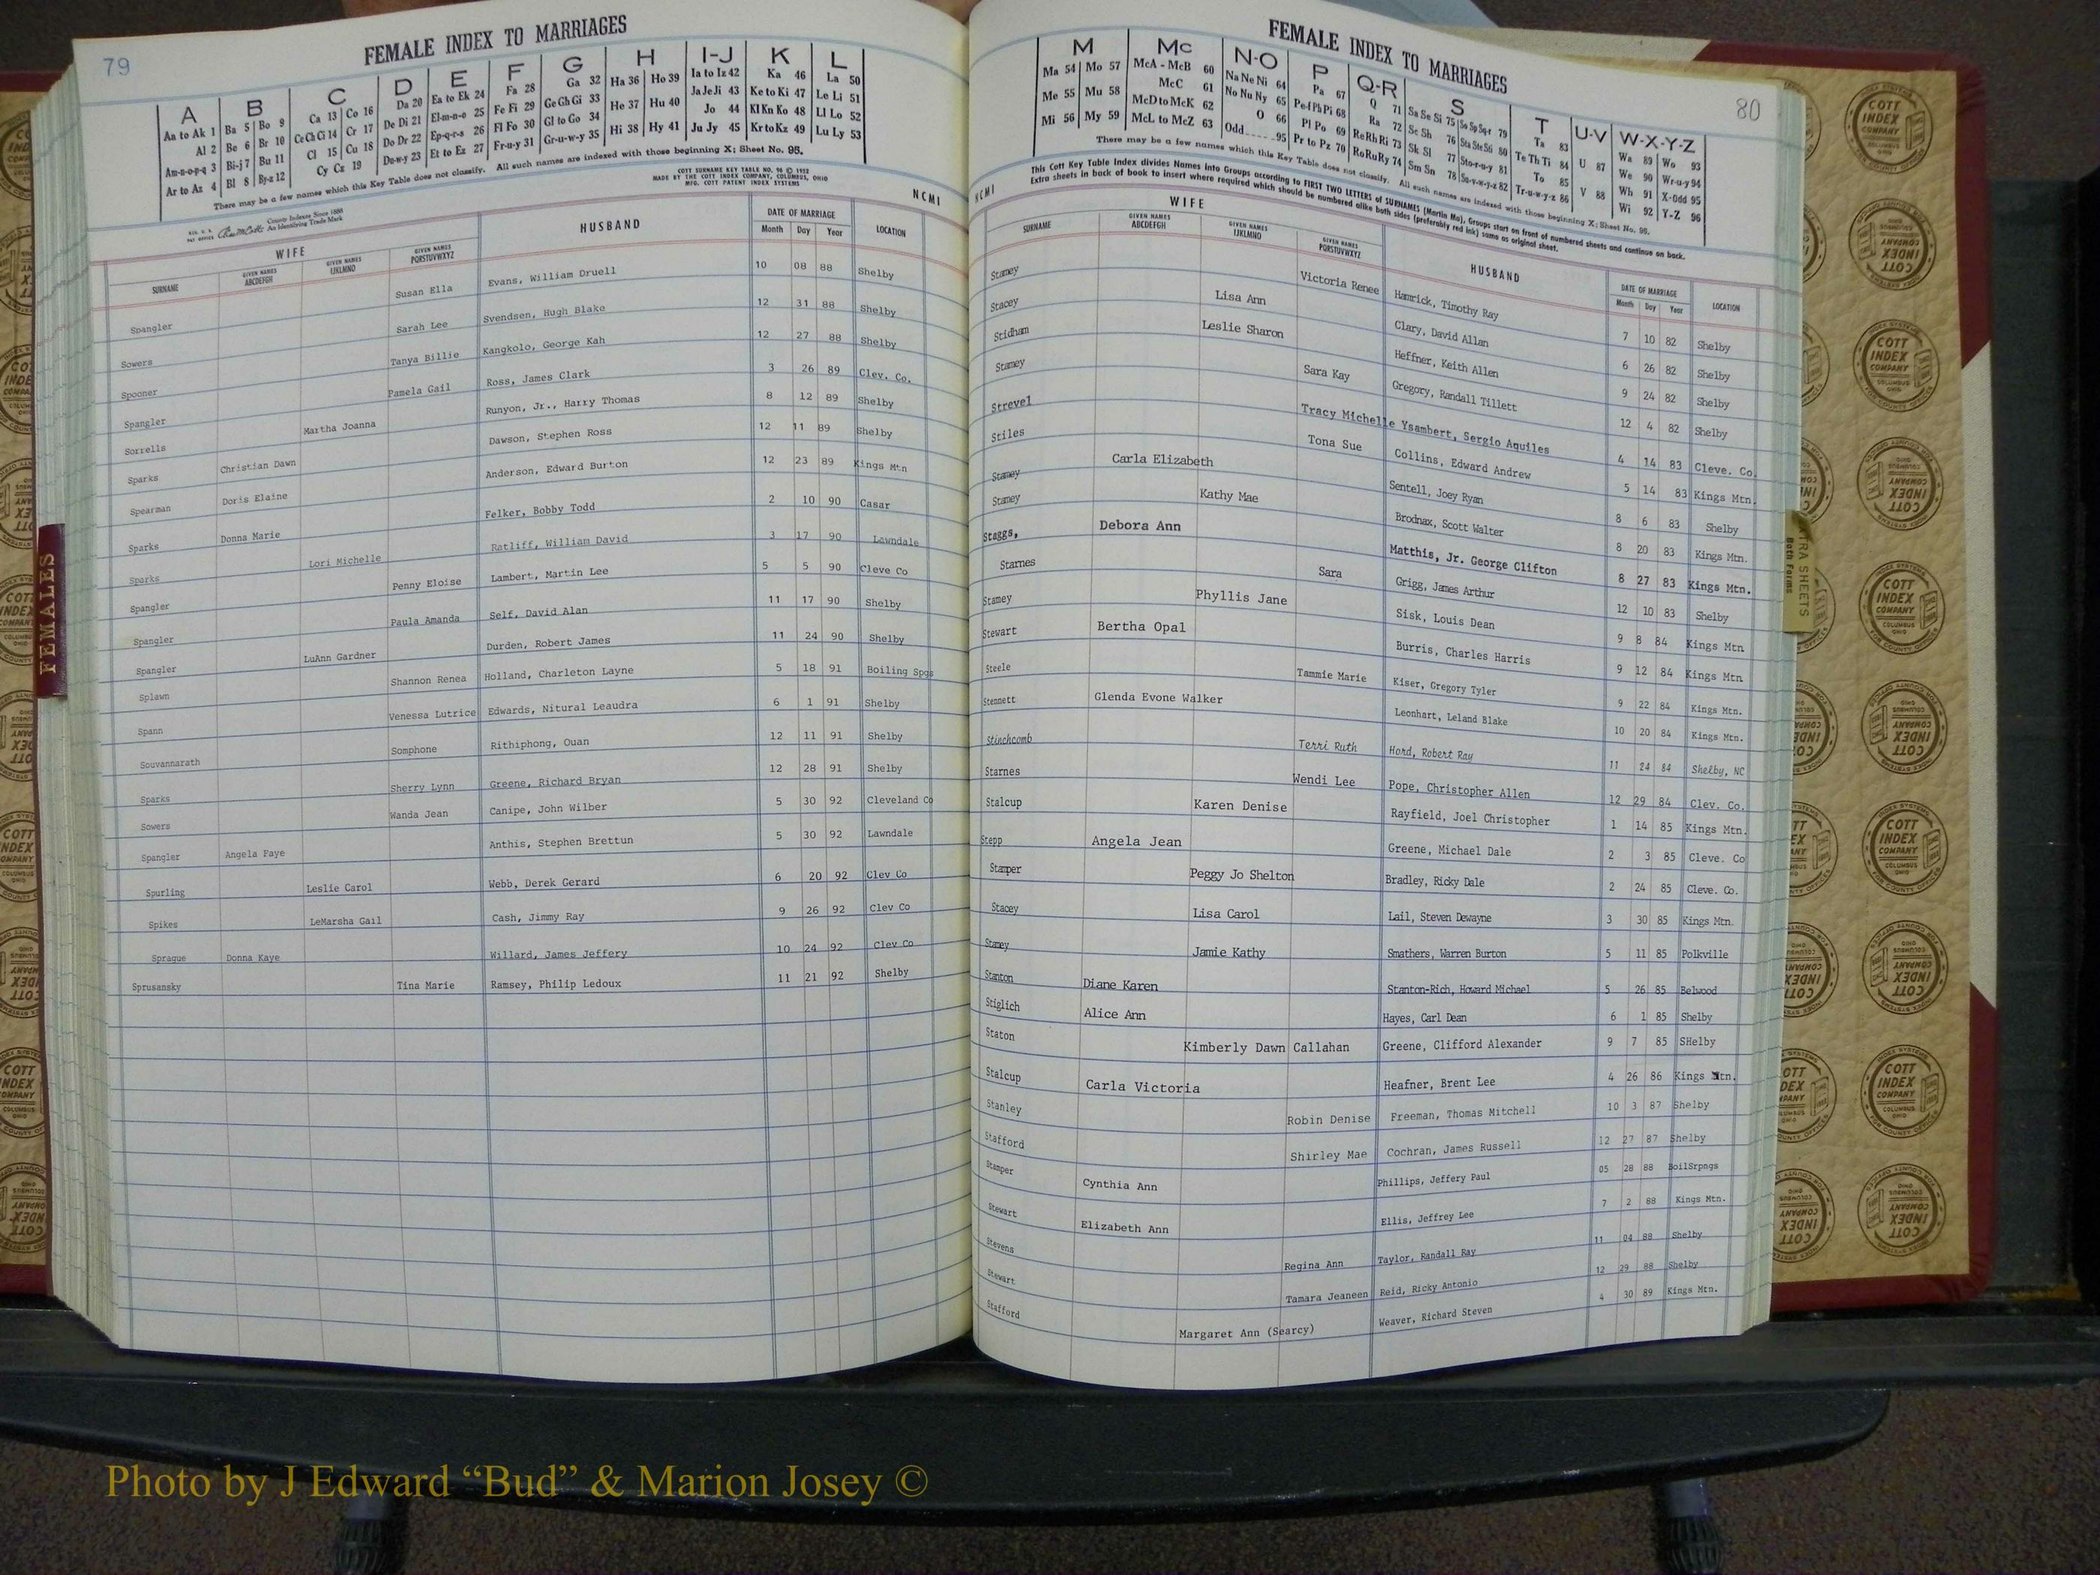 79
FEMALE INDEX TO MARRIAGES
A B C D E F G H I-J K L
Aa to Ak 1 Ba 5 Bo 9 Ca 13 Co 16 Da 20 Ea to Ek 24 Fa 28 Ga 32 Ha 36 Ho 39 Ia to Iz 42 Ka 46 La 50
Al 2 Be 6 Br 10 Ce Ch Ci 14 Cr 17 De Di 21 El-m-n-o 25 Fe Fi 29 Ge Gh Gi 33 He 37 Hu 40 Ja Je Ji 43 Ke to Ki 47 Le Li 51
Am-n-o-p-q 3 Bi-j 7 Bu 11 Cl 15 Cu 18 Do Dr 22 Ep-q-r-s 26 Fl Fo 30 Gl to Go 34 Hi 38 Hy 41 Jo 44 Kl Kn Ko 48 Ll Lo 52
Ar to Az 4 Bl 8 By-z 12 Cy Cz 19 Du-w-y 23 Et to Ez 27 Fr-u-y 31 Gr-u-w-y 35 Ju Jy 45 Kr to Kz 49 Lu Ly 53
There may be a few names which this Key Table does not classify. All such names are indexed with those beginning X; Sheet No. 96.
COTT SURNAME KEY TABLE NO. 96 © 1952
MADE BY THE COTT INDEX COMPANY, COLUMBUS, OHIO
MFG. COTT PATENT INDEX SYSTEMS
NCMI
County Indexes Since 1888
An Identifying Trade Mark
WIFE HUSBAND DATE OF MARRIAGE LOCATION
SURNAME GIVEN NAMES ABCDEFGH GIVEN NAMES IJKLMNO GIVEN NAMES PQRSTUVWXYZ Month Day Year
Spangler Susan Ella Evans, William Druell 10 08 88 Shelby
Sowers Sarah Lee Svendsen, Hugh Blake 12 31 88 Shelby
Spooner Tanya Billie Kangkolo, George Kah 12 27 88 Shelby
Spangler Pamela Gail Ross, James Clark 3 26 89 Clev. Co.
Sorrells Martha Joanna Runyon, Jr., Harry Thomas 8 12 89 Shelby
Sparks Christian Dawn Dawson, Stephen Ross 12 11 89 Shelby
Spearman Doris Elaine Anderson, Edward Burton 12 23 89 Kings Mtn
Sparks Donna Marie Felker, Bobby Todd 2 10 90 Casar
Sparks Lori Michelle Ratliff, William David 3 17 90 Lawndale
Spangler Penny Eloise Lambert, Martin Lee 5 5 90 Cleve Co
Spangler Paula Amanda Self, David Alan 11 17 90 Shelby
Spangler LuAnn Gardner Durden, Robert James 11 24 90 Shelby
Splawn Shannon Renea Holland, Charleton Layne 5 18 91 Boiling Spgs
Spann Venessa Lutrice Edwards, Nitural Leaudra 6 1 91 Shelby
Souvannarath Somphone Rithiphong, Ouan 12 11 91 Shelby
Sparks Sherry Lynn Greene, Richard Bryan 12 28 91 Shelby
Sowers Wanda Jean Canipe, John Wilber 5 30 92 Cleveland Co
Spangler Angela Faye Anthis, Stephen Brettun 5 30 92 Lawndale
Spurling Leslie Carol Webb, Derek Gerard 6 20 92 Clev Co
Spikes LeMarsha Gail Cash, Jimmy Ray 9 26 92 Clev Co
Sprague Donna Kaye Willard, James Jeffery 10 24 92 Clev Co
Sprusansky Tina Marie Ramsey, Philip Ledoux 11 21 92 Shelby
FEMALES
FEMALE INDEX TO MARRIAGES
80
M Mc N-O P Q-R S T U-V W-X-Y-Z
Ma 54 Mo 57 McA - McB 60 Na Ne Ni 64 Pa 67 Q 71 Sa Se Si 75 So Sp Sq-r 79 Ta 83 U 87 Wa 89 Wo 93
Me 55 Mu 58 McC 61 No Nu Ny 65 Pe-f Ph Pi 68 Ra 72 Sc Sh 76 Sta Ste Sti 80 Te Th Ti 84 V 88 We 90 Wr-u-y 94
Mi 56 My 59 McD to McK 62 O 66 Pl Po 69 Re Rh Ri 73 Sk Sl 77 Sto-r-u-y 81 To 85 Wh 91 X-Odd 95
McL to McZ 63 Odd 95 Pr to Pz 70 Ro Ru Ry 74 Sm Sn 78 Su-v-w-y-z 82 Tr-u-w-y-z 86 Wi 92 Y-Z 96
There may be a few names which this Key Table does not classify. All such names are indexed with those beginning X; Sheet No. 96.
NCMI
This Cott Key Table Index divides Names into Groups according to FIRST TWO LETTERS of SURNAMES (Martin Ma). Groups start on front of numbered sheets and continue on back.
Extra sheets in back of book to insert where required which should be numbered alike both sides (preferably red ink) same as original sheet.
WIFE HUSBAND DATE OF MARRIAGE LOCATION
SURNAME GIVEN NAMES ABCDEFGH GIVEN NAMES IJKLMNO GIVEN NAMES PQRSTUVWXYZ Month Day Year
Stamey Victoria Renee Hamrick, Timothy Ray 7 10 82 Shelby
Stacey Lisa Ann Clary, David Allan 6 26 82 Shelby
Stidham Leslie Sharon Heffner, Keith Allen 9 24 82 Shelby
Stamey Sara Kay Gregory, Randall Tillett 12 4 82 Shelby
Strevel Tracy Michelle Ysambert, Sergio Aquiles 4 14 83 Cleve. Co.
Stiles Tona Sue Collins, Edward Andrew 5 14 83 Kings Mtn.
Stamey Carla Elizabeth Sentell, Joey Ryan 8 6 83 Shelby
Stamey Kathy Mae Brodnax, Scott Walter 8 20 83 Kings Mtn.
Staggs, Debora Ann Matthis, Jr. George Clifton 8 27 83 Kings Mtn.
Starnes Sara Grigg, James Arthur 12 10 83 Shelby
Stamey Phyllis Jane Sisk, Louis Dean 9 8 84 Kings Mtn
Stewart Bertha Opal Burris, Charles Harris 9 12 84 Kings Mtn
Steele Tammie Marie Kiser, Gregory Tyler 9 22 84 Kings Mtn.
Stennett Glenda Evone Walker Leonhart, Leland Blake 10 20 84 Kings Mtn.
Stinchcomb Terri Ruth Hord, Robert Ray 11 24 84 Shelby, NC
Starnes Wendi Lee Pope, Christopher Allen 12 29 84 Clev. Co.
Stalcup Karen Denise Rayfield, Joel Christopher 1 14 85 Kings Mtn.
Stepp Angela Jean Greene, Michael Dale 2 3 85 Cleve. Co
Stamper Peggy Jo Shelton Bradley, Ricky Dale 2 24 85 Cleve. Co.
Stacey Lisa Carol Lail, Steven Dewayne 3 30 85 Kings Mtn.
Stamey Jamie Kathy Smathers, Warren Burton 5 11 85 Polkville
Stanton Diane Karen Stanton-Rich, Howard Michael 5 26 85 Belwood
Stiglich Alice Ann Hayes, Carl Dean 6 1 85 Shelby
Staton Kimberly Dawn Callahan Greene, Clifford Alexander 9 7 85 SHelby
Stalcup Carla Victoria Heafner, Brent Lee 4 26 86 Kings Mtn.
Stanley Robin Denise Freeman, Thomas Mitchell 10 3 87 Shelby
Stafford Shirley Mae Cochran, James Russell 12 27 87 Shelby
Stamper Cynthia Ann Phillips, Jeffery Paul 05 28 88 BoilSrpngs
Stewart Elizabeth Ann Ellis, Jeffrey Lee 7 2 88 Kings Mtn.
Stevens Regina Ann Taylor, Randall Ray 11 04 88 Shelby
Stewart Tamara Jeaneen Reid, Ricky Antonio 12 29 88 Shelby
Stafford Margaret Ann (Searcy) Weaver, Richard Steven 4 30 89 Kings Mtn.
EXTRA SHEETS
Both Forms
COTT INDEX COMPANY COLUMBUS OHIO
Photo by J Edward “Bud” & Marion Josey ©